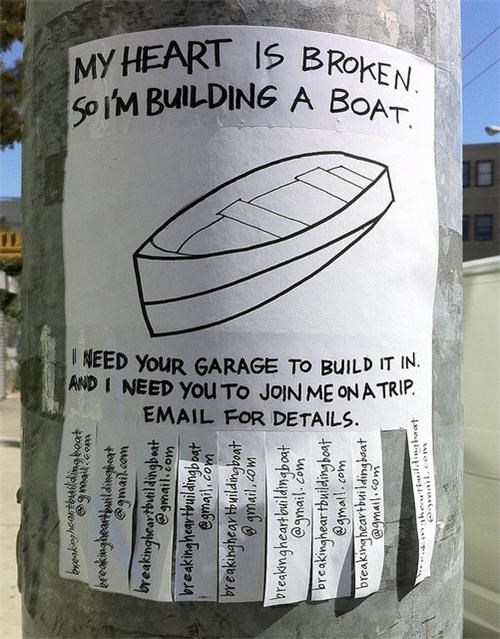 MY HEART IS BROKEN.
SO I'M BUILDING A BOAT.
I NEED YOUR GARAGE TO BUILD IT IN.
AND I NEED YOU TO JOIN ME ON A TRIP.
EMAIL FOR DETAILS.
breakingheartbuildingboat
@gmail.com
breakingheartbuildingboat
@gmail.com
breakingheartbuildingboat
@gmail.com
breakingheartbuildingboat
@gmail.com
breakingheartbuildingboat
@gmail.com
breakingheartbuildingboat
@gmail.com
breakingheartbuildingboat
@gmail.com
breakingheartbuildingboat
@gmail.com
breakingheartbuildingboat
@gmail.com